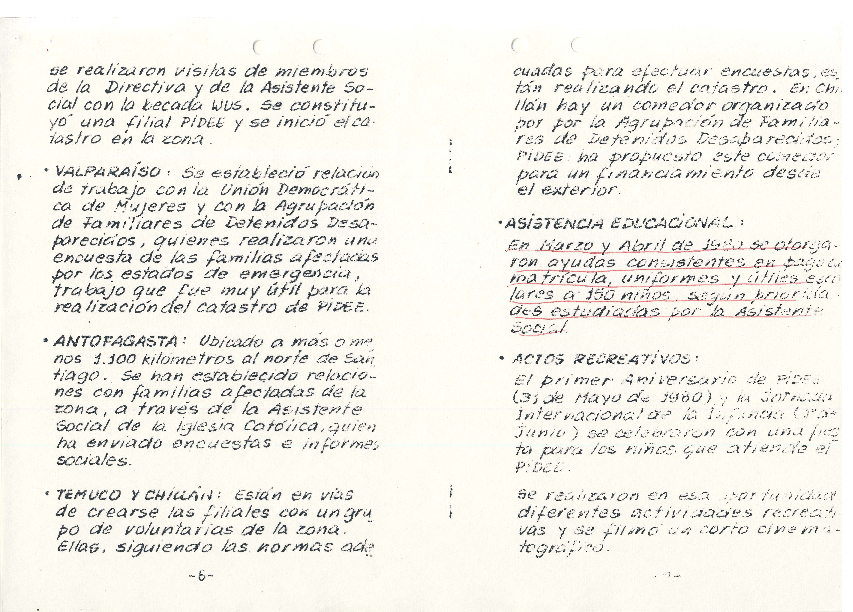 se realizaron visitas de miembros
de la Directiva y de la Asistente So-
cial con la becada WUS. Se constitu-
yó una filial PIDEE y se inició el ca-
tastro en la zona.
• VALPARAÍSO: Se estableció relación
de trabajo con la Unión Democráti-
ca de Mujeres y con la Agrupación
de Familiares de Detenidos Desa-
parecidos, quienes realizaron una
encuesta de las familias afectadas
por los estados de emergencia,
trabajo que fue muy útil para la
realización del catastro de PIDEE.
• ANTOFAGASTA: Ubicado a más o me
nos 1.100 kilómetros al norte de San
tiago. Se han establecido relacio-
nes con familias afectadas de la
zona, a través de la Asistente
Social de la Iglesia Católica, quien
ha enviado encuestas e informes
sociales.
• TEMUCO Y CHILLÁN: Están en vías
de crearse las filiales con un gru
po de voluntarias de la zona.
Ellas, siguiendo las normas ade
-6-
cuadas para efectuar encuestas, es
tán realizando el catastro. En Chi
llán hay un comedor organizado
por por la Agrupación de Familia-
res de Detenidos Desaparecidos;
PIDEE ha propuesto este comedor
para un financiamiento desde
el exterior.
• ASISTENCIA EDUCACIONAL:
En Marzo y Abril de 1980 se otorga-
ron ayudas consistentes en pago de
matrícula, uniformes y útiles esco
lares a 150 niños, según priorida-
des estudiadas por la Asistente
Social.
• ACTOS RECREATIVOS:
El primer Aniversario de PIDEE
(31 de Mayo de 1980) y la Jornada
Internacional de la Infancia (1º de
Junio) se celebraron con una fies
ta para los niños que atiende el
PIDEE.
Se realizaron en esa oportunidad
diferentes actividades recreati
vas y se filmó un corto cinema-
tográfico.